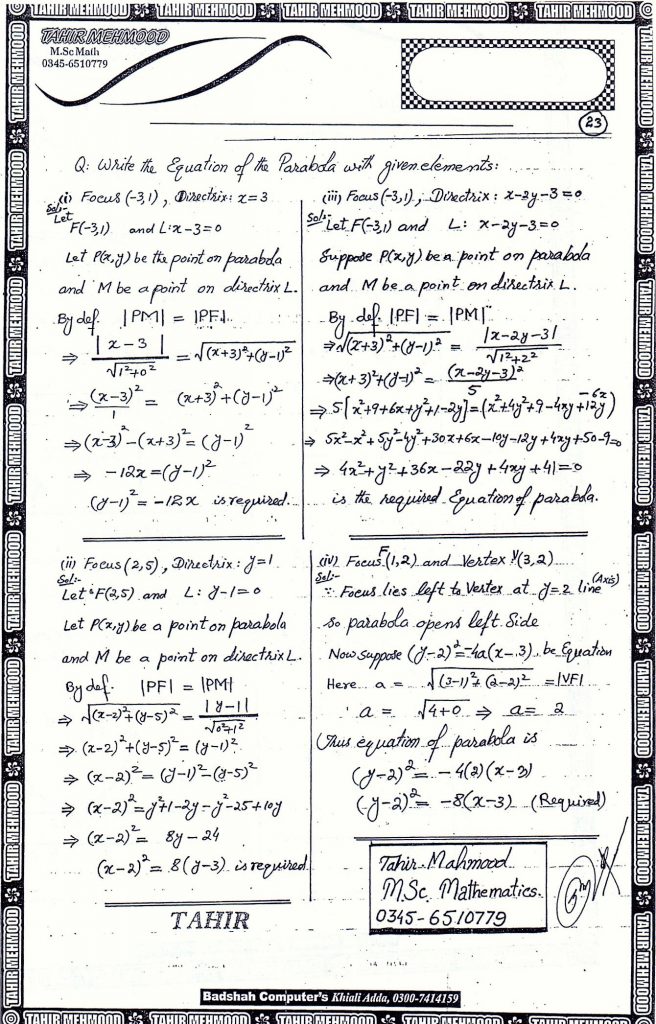 TAHIR MEHMOOD
M.Sc Math
0345-6510779
23
Q: Write the Equation of the Parabola with given elements:
(i) Focus (-3,1), Directrix: x=3
Sol:-
Let
F(-3,1) and L: x-3=0
Let P(x,y) be the point on parabola
and M be a point on directrix L.
By def. |PM| = |PF|
⇒ |x-3| / √(1²+0²) = √((x+3)²+(y-1)²)
⇒ (x-3)²/1 = (x+3)²+(y-1)²
⇒ (x-3)²-(x+3)² = (y-1)²
⇒ -12x = (y-1)²
(y-1)² = -12x is required.
(ii) Focus (2,5), Directrix: y=1
Sol:-
Let F(2,5) and L: y-1=0
Let P(x,y) be a point on parabola
and M be a point on directrix L.
By def. |PF| = |PM|
⇒ √((x-2)²+(y-5)²) = |y-1| / √(0²+1²)
⇒ (x-2)²+(y-5)² = (y-1)²
⇒ (x-2)² = (y-1)²-(y-5)²
⇒ (x-2)² = y²+1-2y-y²-25+10y
⇒ (x-2)² = 8y-24
(x-2)² = 8(y-3) is required
TAHIR
(iii) Focus (-3,1), Directrix: x-2y-3=0
Sol:-
Let F(-3,1) and L: x-2y-3=0
Suppose P(x,y) be a point on parabola
and M be a point on directrix L.
By def. |PF| = |PM|
⇒ √((x+3)²+(y-1)²) = |x-2y-3| / √(1²+2²)
⇒ (x+3)²+(y-1)² = (x-2y-3)²/5
⇒ 5[x²+9+6x+y²+1-2y] = (x²+4y²+9-4xy+12y-6x)
⇒ 5x²-x²+5y²-4y²+30x+6x-10y-12y+4xy+50-9=0
⇒ 4x²+y²+36x-22y+4xy+41=0
is the required Equation of parabola.
(iv) Focus F(1,2) and Vertex V(3,2)
Sol:-
∵ Focus lies left to Vertex at y=2 line (Axis)
so parabola opens left Side
Now suppose (y-2)²=-4a(x-3) be Equation
Here a = √((3-1)²+(2-2)²) = |VF|
a = √(4+0) ⇒ a = 2
Thus equation of parabola is
(y-2)² = -4(2)(x-3)
(y-2)² = -8(x-3) (Required)
Tahir Mahmood
M.Sc. Mathematics.
0345-6510779
Badshah Computer's Khiali Adda, 0300-7414159